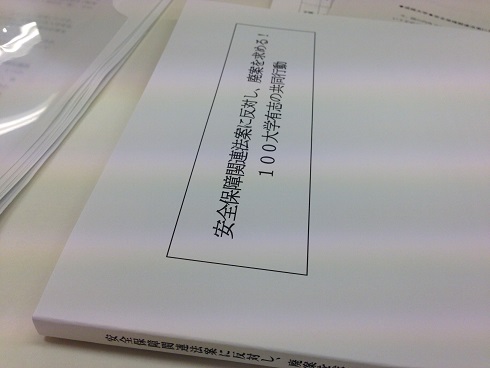 安全保障関連法案に反対し、廃案を求める！
１００大学有志の共同行動
安全保障関連法案に反対し、廃案を求